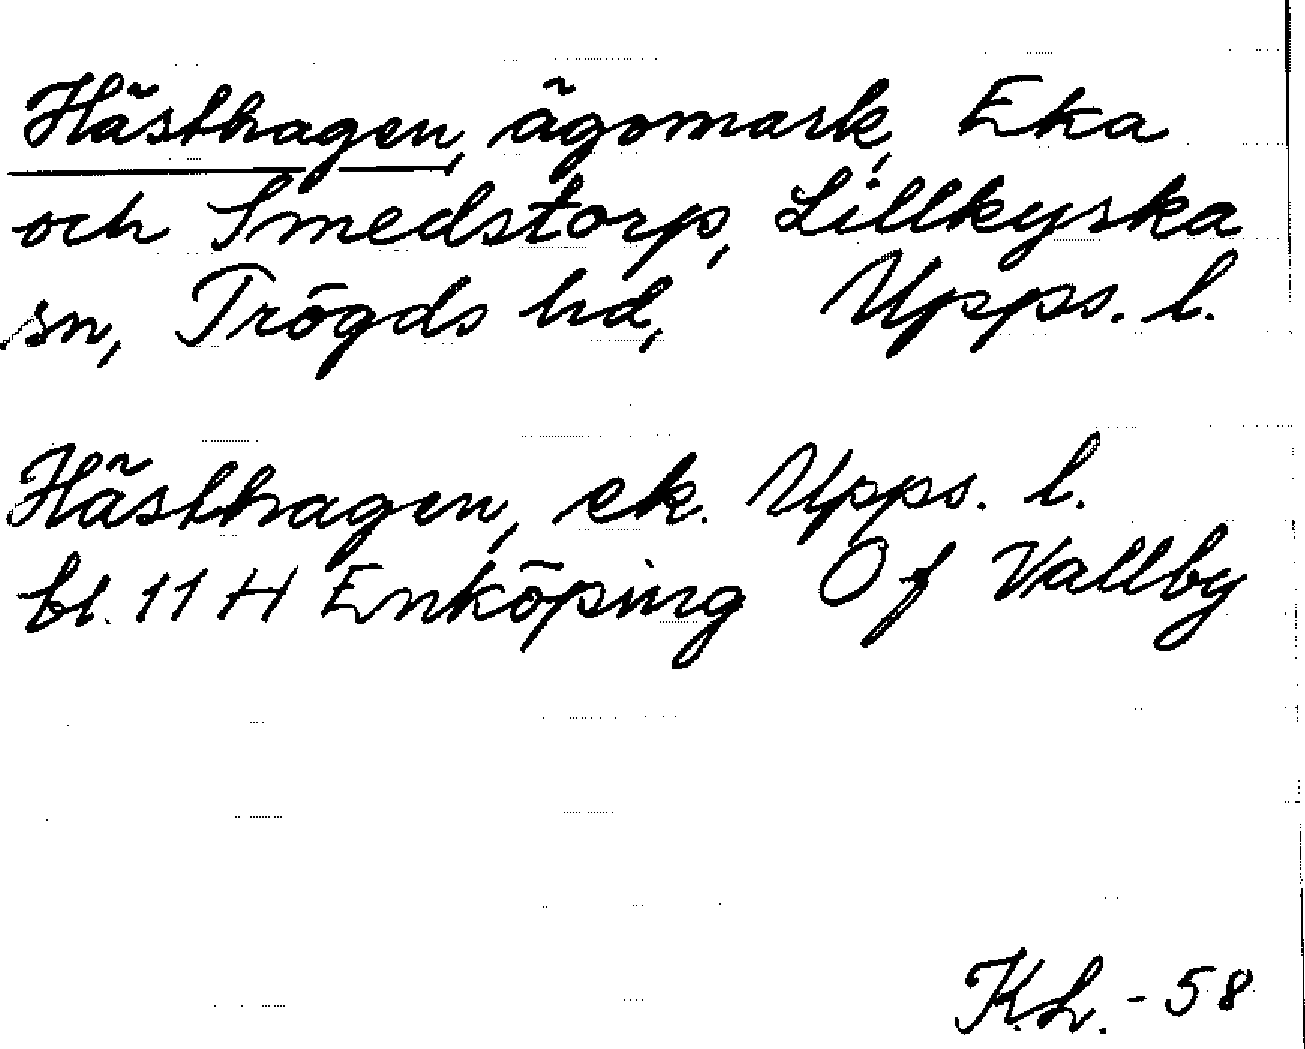 Hästhagen, ägomark, Eka
och Smedstorp, Lillkyrka
sn, Trögds hd, Upps. l.
Hästhagen, ek. Upps. l.
bl. 11 H Enköping Of Vallby
K.L. - 58